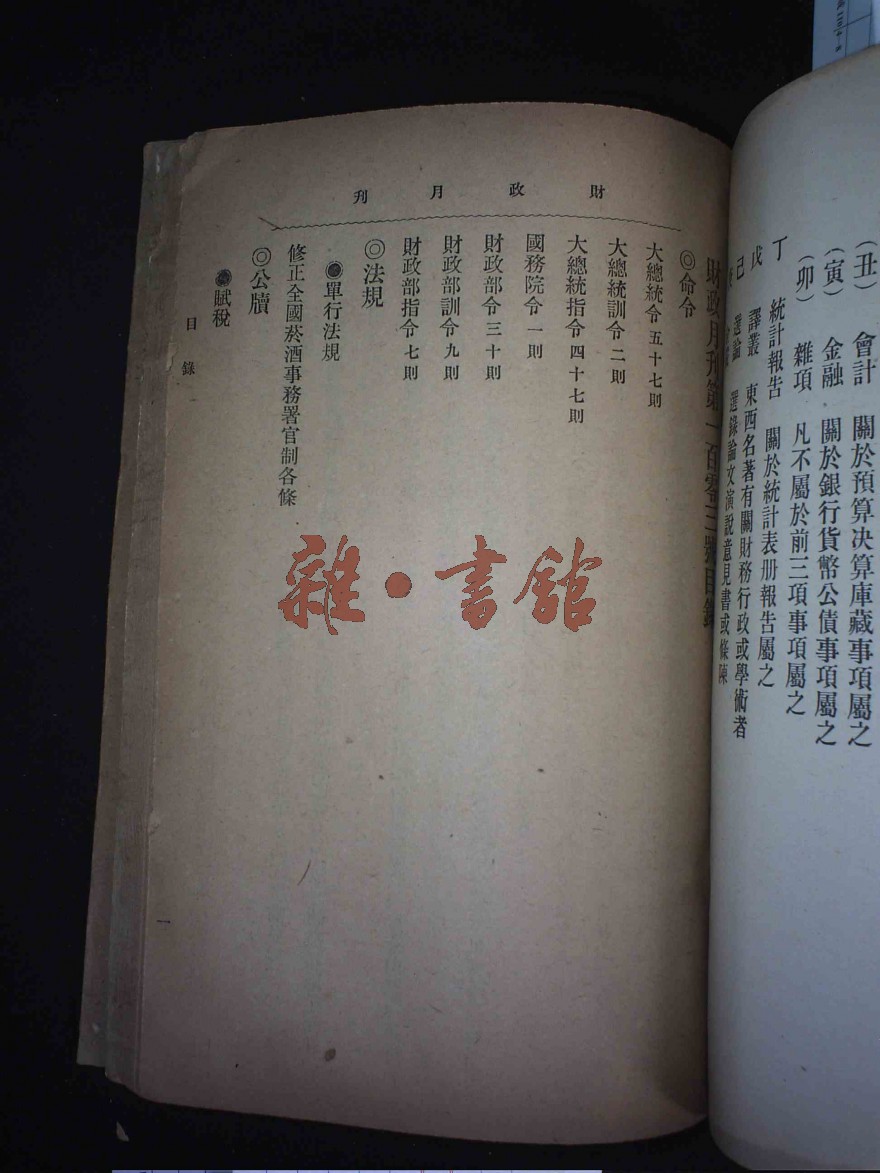 (丑) 會計 關於預算決算庫藏事項屬之
(寅) 金融 關於銀行貨幣公債事項屬之
(卯) 雜項 凡不屬於前三項事項屬之
丁 統計報告 關於統計表册報告屬之
戊 譯叢 東西名著有關財務行政或學術者
己 選論 選錄論文演說意見書或條陳
財政月刊
財政月刊第一百零三號目錄
◎命令
大總統令五十七則
大總統訓令二則
大總統指令四十七則
國務院令一則
財政部令三十則
財政部訓令九則
財政部指令七則
◎法規
●單行法規
修正全國菸酒事務署官制各條
◎公牘
●賦稅
目錄
一
雜·書館